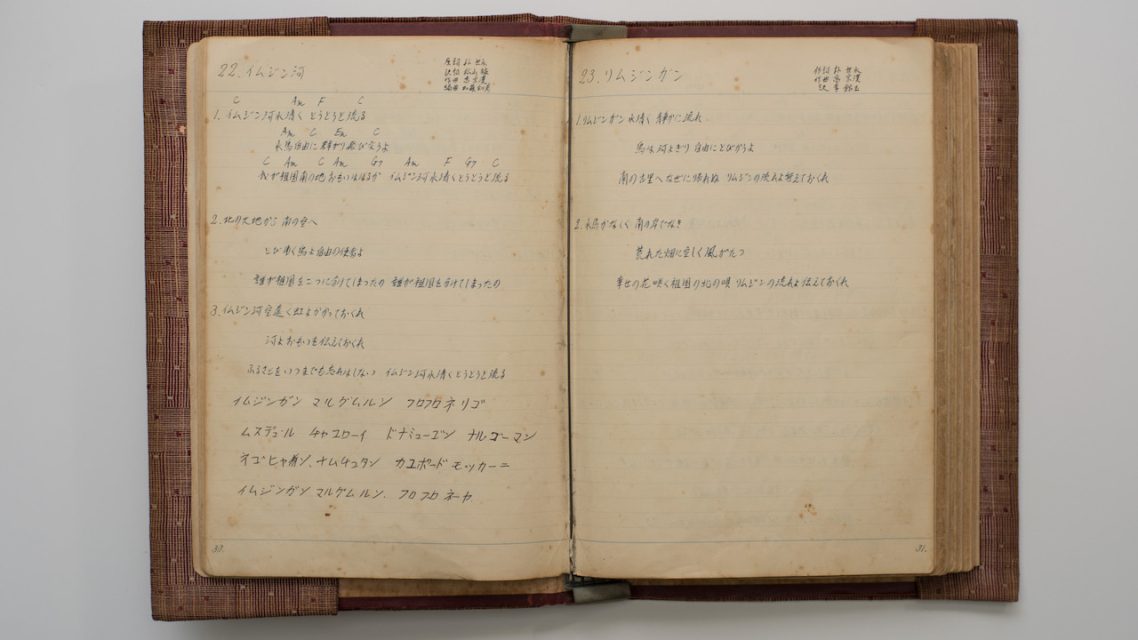 22. イムジン河
原詞 朴 世永
訳詞 松山 猛
作曲 高 宗漢
編曲 加藤和彦
C Am F C
1. イムジン河水清く とうとうと流る
Am C Em C
水鳥自由に群がり飛び交うよ
C Am C Am G7 Am F G7 C
我が祖国南の地 おもいははるか イムジン河水清くとうとうと流る
2. 北の大地から 南の空へ
とび行く鳥よ自由の使者よ
誰が祖国を二つに分けてしまったの 誰が祖国を分けてしまったの
3. イムジン河空遠く 虹よかかっておくれ
河よおもいを伝えておくれ
ふるさとをいつまでも忘れはしない イムジン河水清くとうとうと流る
イムジンガン マルグムルン フロフロネリゴ
ムスデュール チャユローイ ドナミューゴン ナルゴーマン
ネゴヒャガン、ナムチュタン カユボード モッカーニ
イムジンガン マルグムルン. フロフカ ネーヤ
30.
23. リムジンガン
作詞 朴 世永
作曲 高 宗漢
訳 李 錦玉
1. リムジンガン水清く 静かに流れ
鳥は河よぎり 自由にとびかうよ
南の古里へ なぜに帰れぬ リムジンの流れよ答えておくれ
2. 水鳥かなしく 南の岸でなき
荒れた畑に空しく風がたつ
幸せの花咲く祖国の北の唄 リムジンの流れよ伝えておくれ
31.